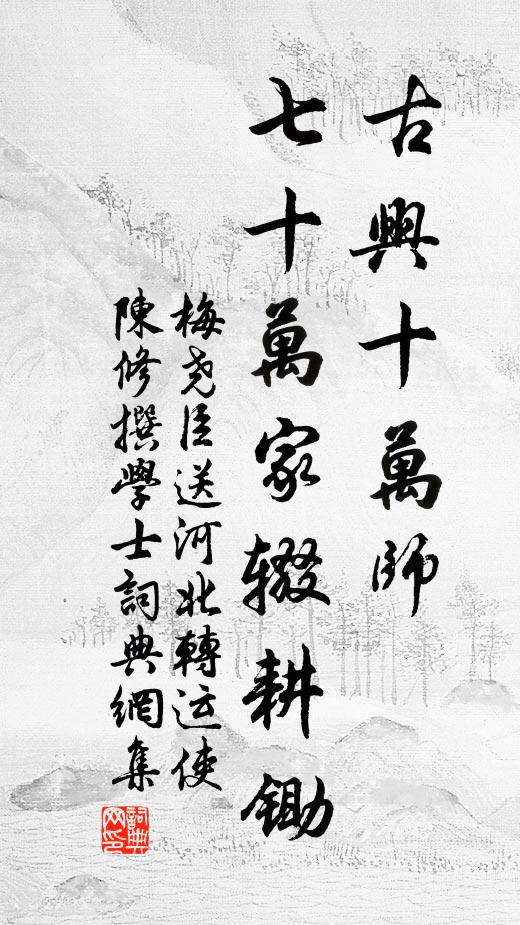 古興十萬師
七十萬家辍耕锄
梅尧臣送河北轉运使
陳修撰學士詞典網集
詞典
网印